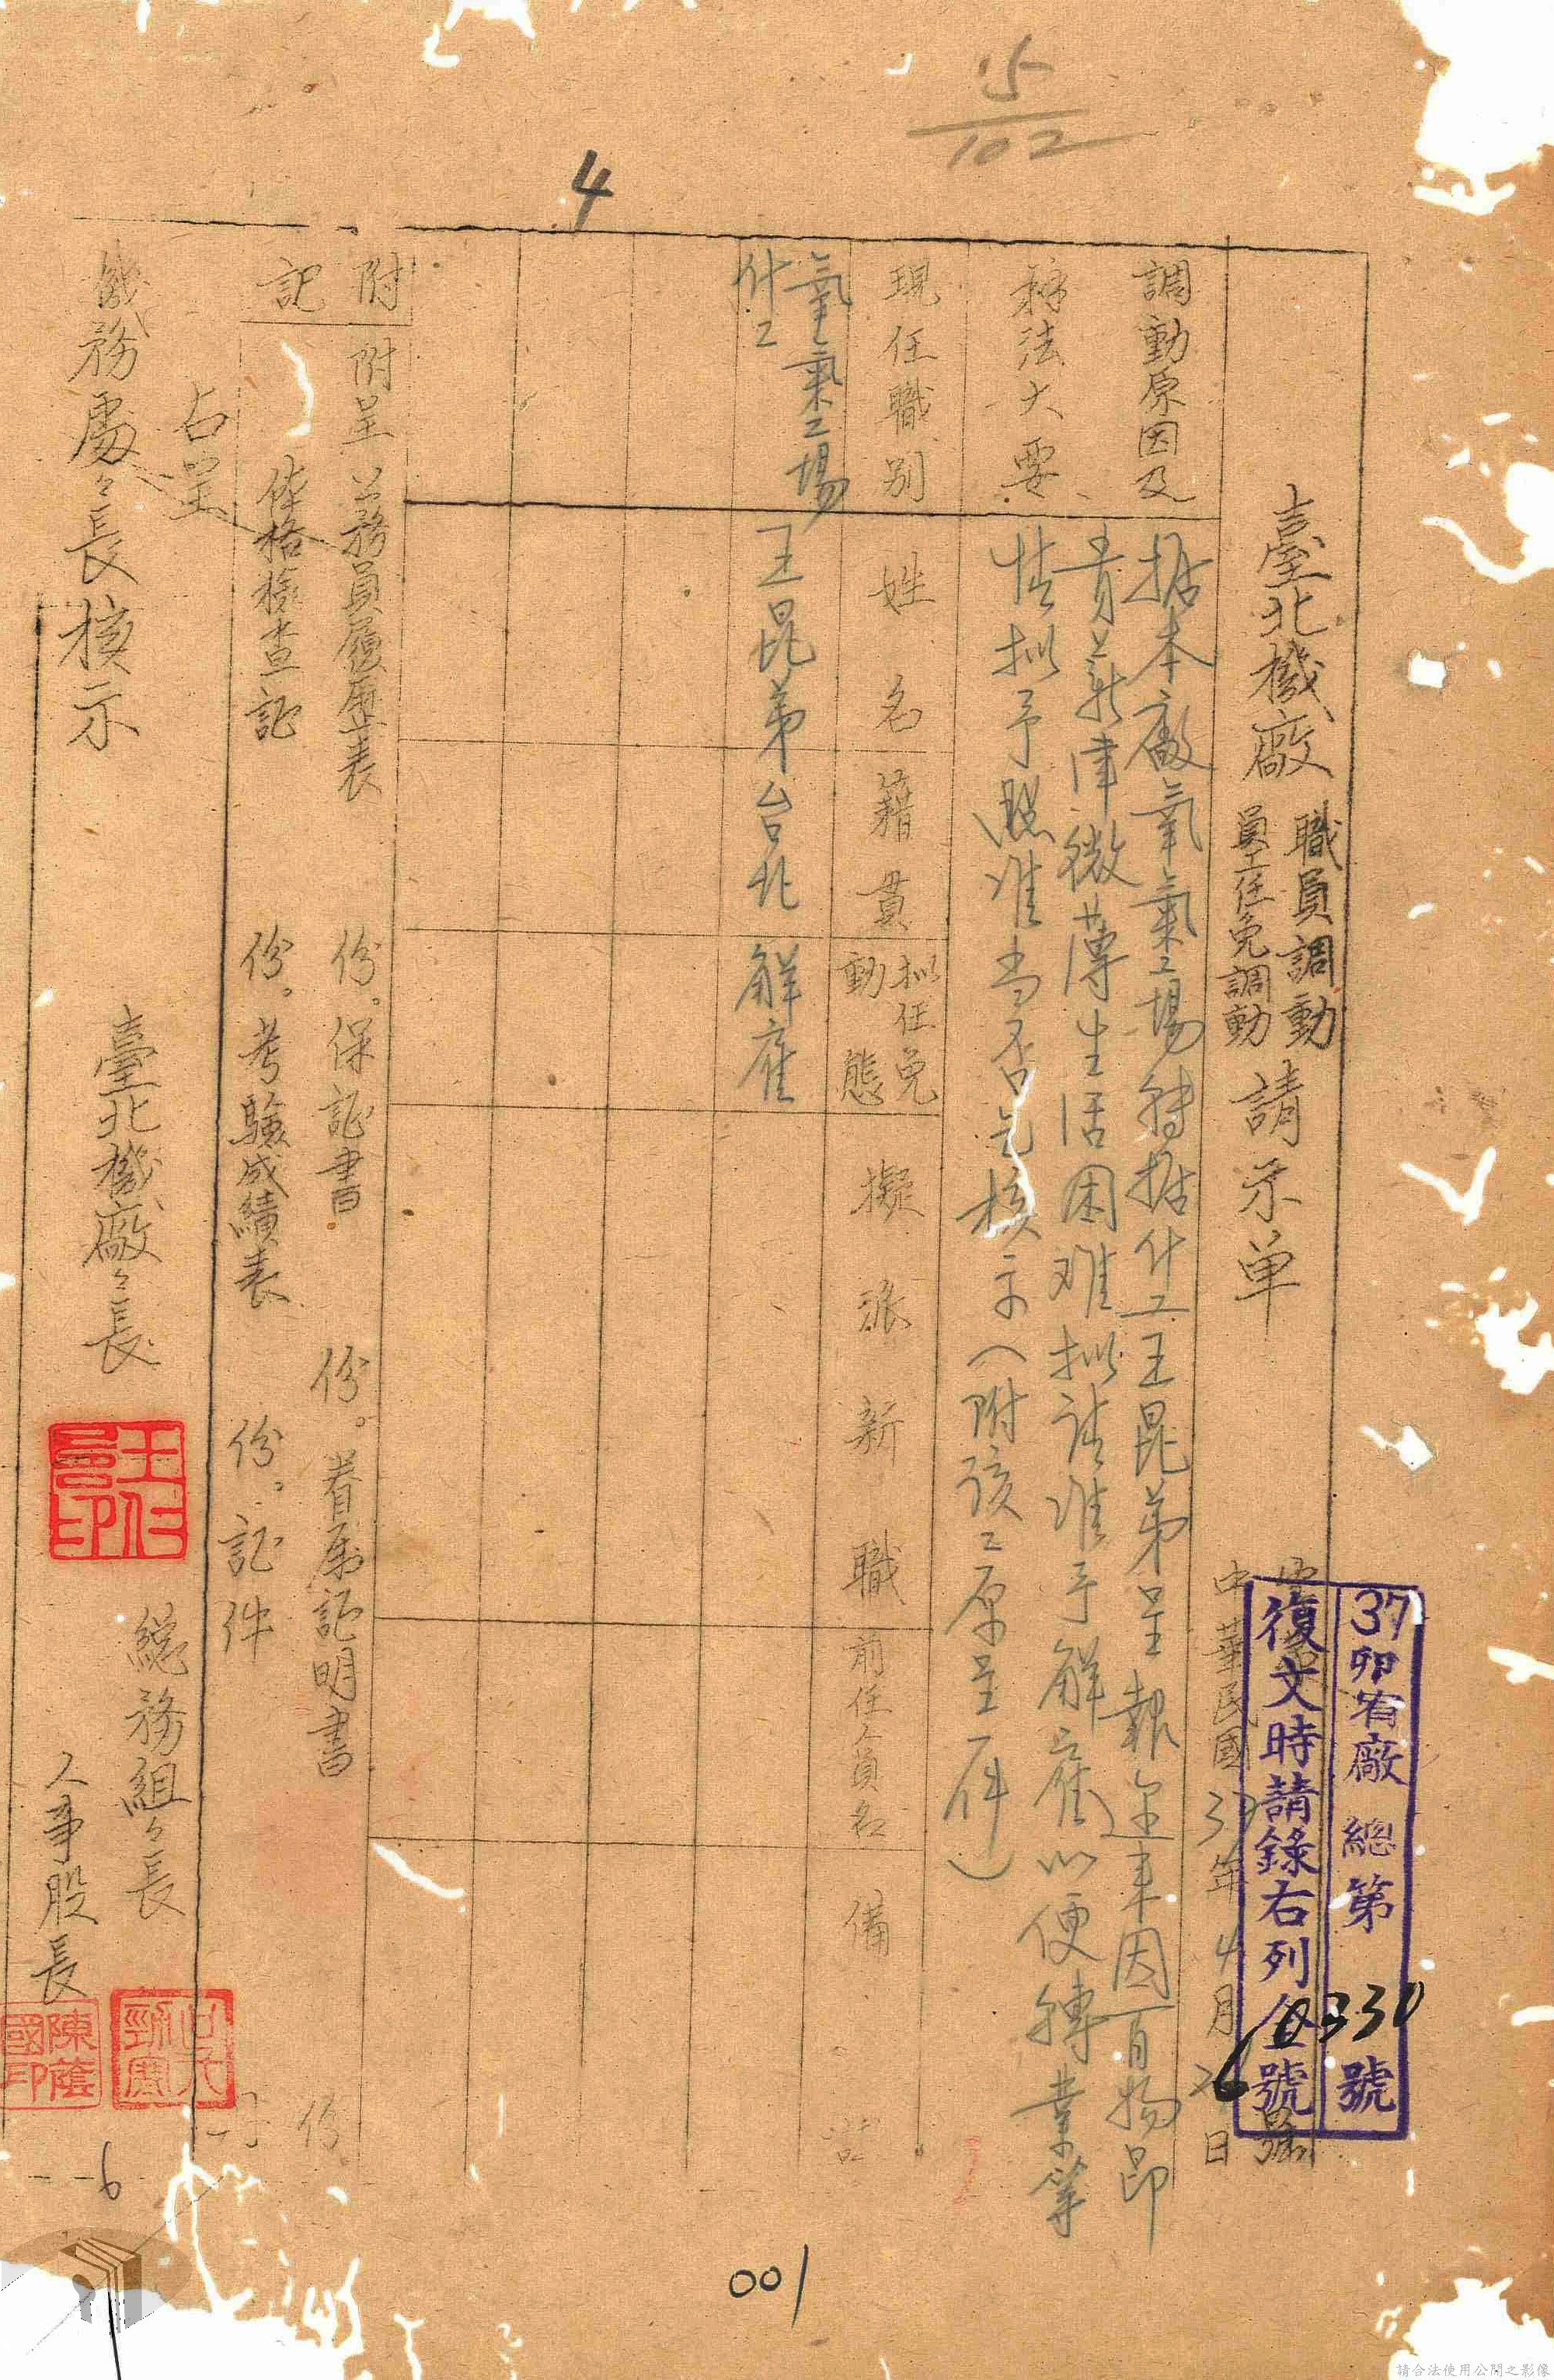 15
102
4
臺北機廠
職員調動
員工任免調動
請示单
中華民國37年4月26日
號
37卯宥廠總第0330號
復文時請錄右列全號
調動原因及
稱法大要
据本廠氧氣工場轉据什工王昆弟呈報近來因百物昂
貴并薪津微薄生活困难拟請准予解雇以便轉業等
情拟予照准当否乞核示（附該工原呈一件）
現任職别
姓名
籍貫
拟任免
動態
擬派新職
前任人員名
備註
氧氣工場
什工
王昆弟
台北
解雇
附記
附呈公務員履歷表 份。保証書 份。眷屬証明書 份
体格檢查証 份。考驗成績表 份。証件
右呈
機務處々長核示
臺北機廠々長
總務組々長
人事股長
陳蔭國印
6
001
請合法使用公開之影像